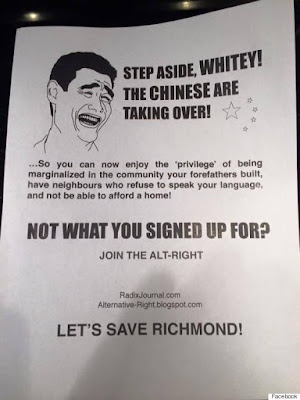 STEP ASIDE, WHITEY!
THE CHINESE ARE
TAKING OVER!
...So you can now enjoy the 'privilege' of being
marginalized in the community your forefathers built,
have neighbours who refuse to speak your language,
and not be able to afford a home!
NOT WHAT YOU SIGNED UP FOR?
JOIN THE ALT-RIGHT
RadixJournal.com
Alternative-Right.blogspot.com
LET'S SAVE RICHMOND!
Facebook